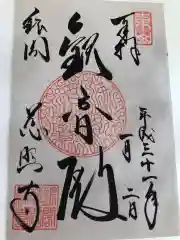 奉拝
平成三十一年
一月二日
観音殿
銀閣
慈照寺